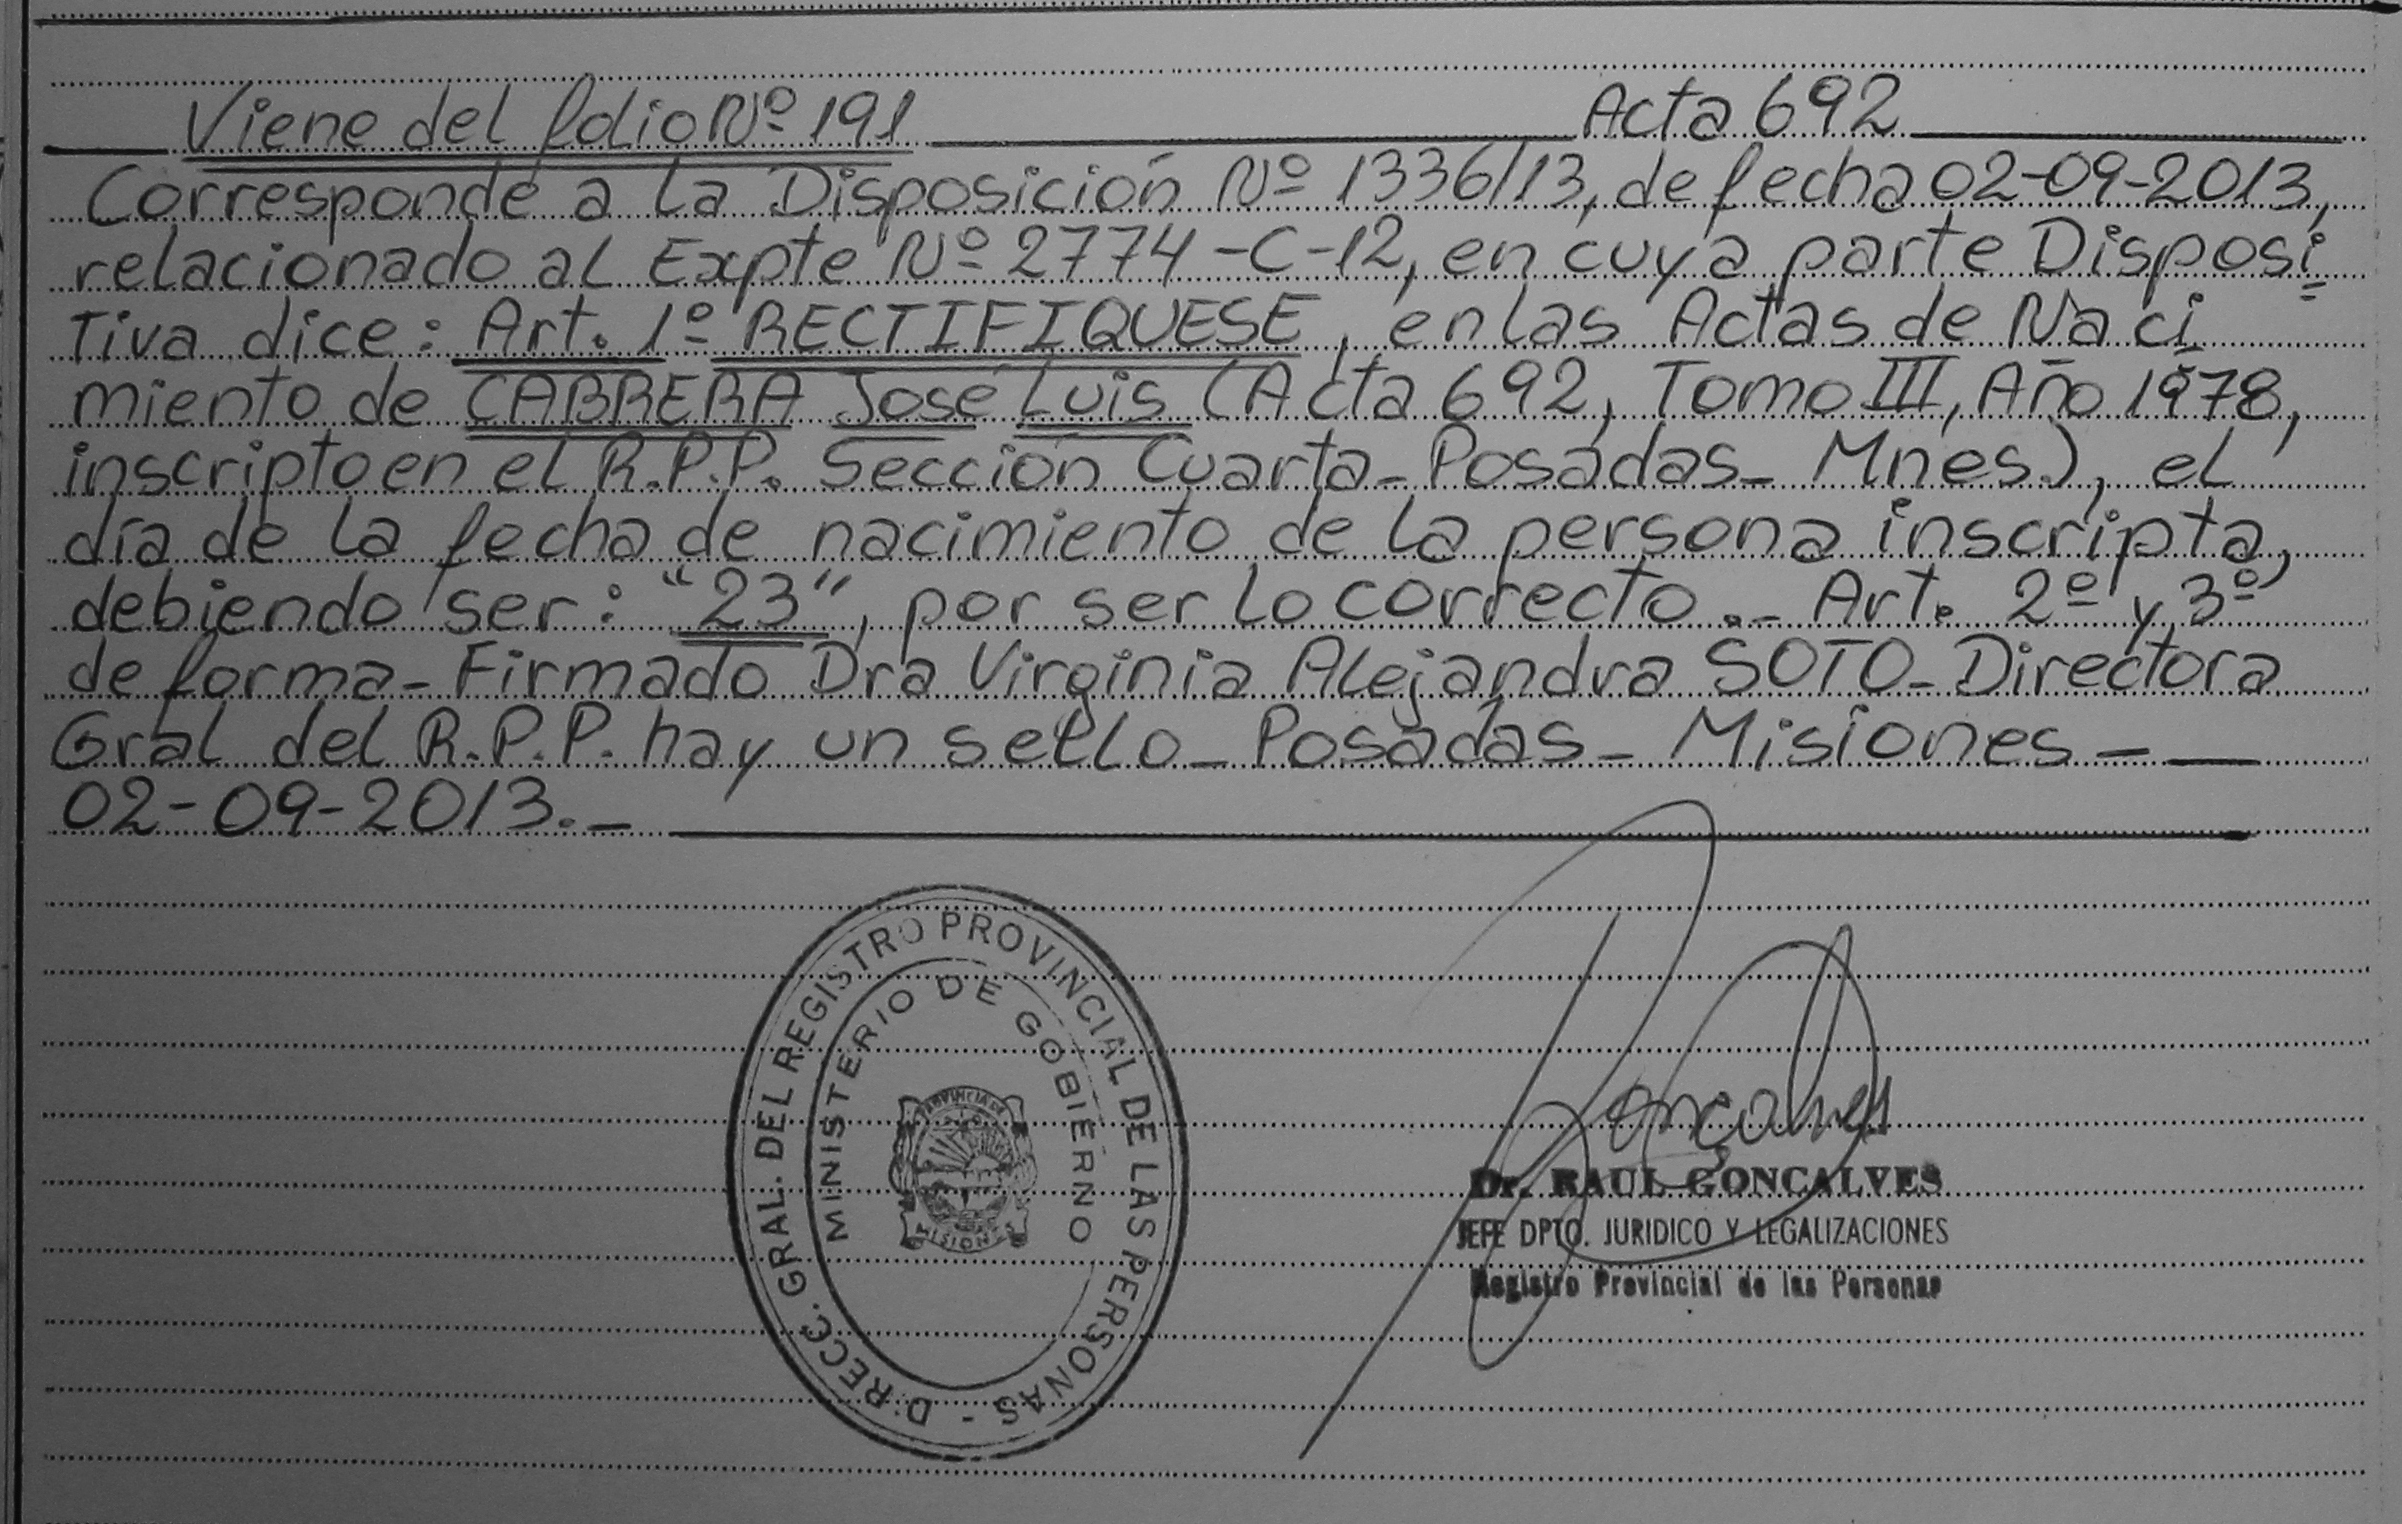 Viene del folio Nº 191 Acta 692
Corresponde a la Disposición Nº 1336/13, de fecha 02-09-2013,
relacionado al Expte Nº 2774-C-12, en cuya parte Disposi
Tiva dice: Art. 1º RECTIFIQUESE, en las Actas de Naci
miento de CABRERA José Luis (Acta 692, Tomo III, Año 1978,
inscripto en el R.P.P. Sección Cuarta_ Posadas_ Mnes.), el
día de la fecha de nacimiento de la persona inscripta,
debiendo ser: "23", por ser lo correcto._ Art. 2º y 3º
de forma_ Firmado Dra Virginia Alejandra SOTO_ Directora
Gral del R.P.P. hay un sello_ Posadas_ Misiones_
02-09-2013._
DIRECC. GRAL. DEL REGISTRO PROVINCIAL DE LAS PERSONAS -
MINISTERIO DE GOBIERNO
PROVINCIA DE
MISIONES
Goncalves
Dr. RAUL GONCALVES
JEFE DPTO. JURIDICO Y LEGALIZACIONES
Registro Provincial de las Personas